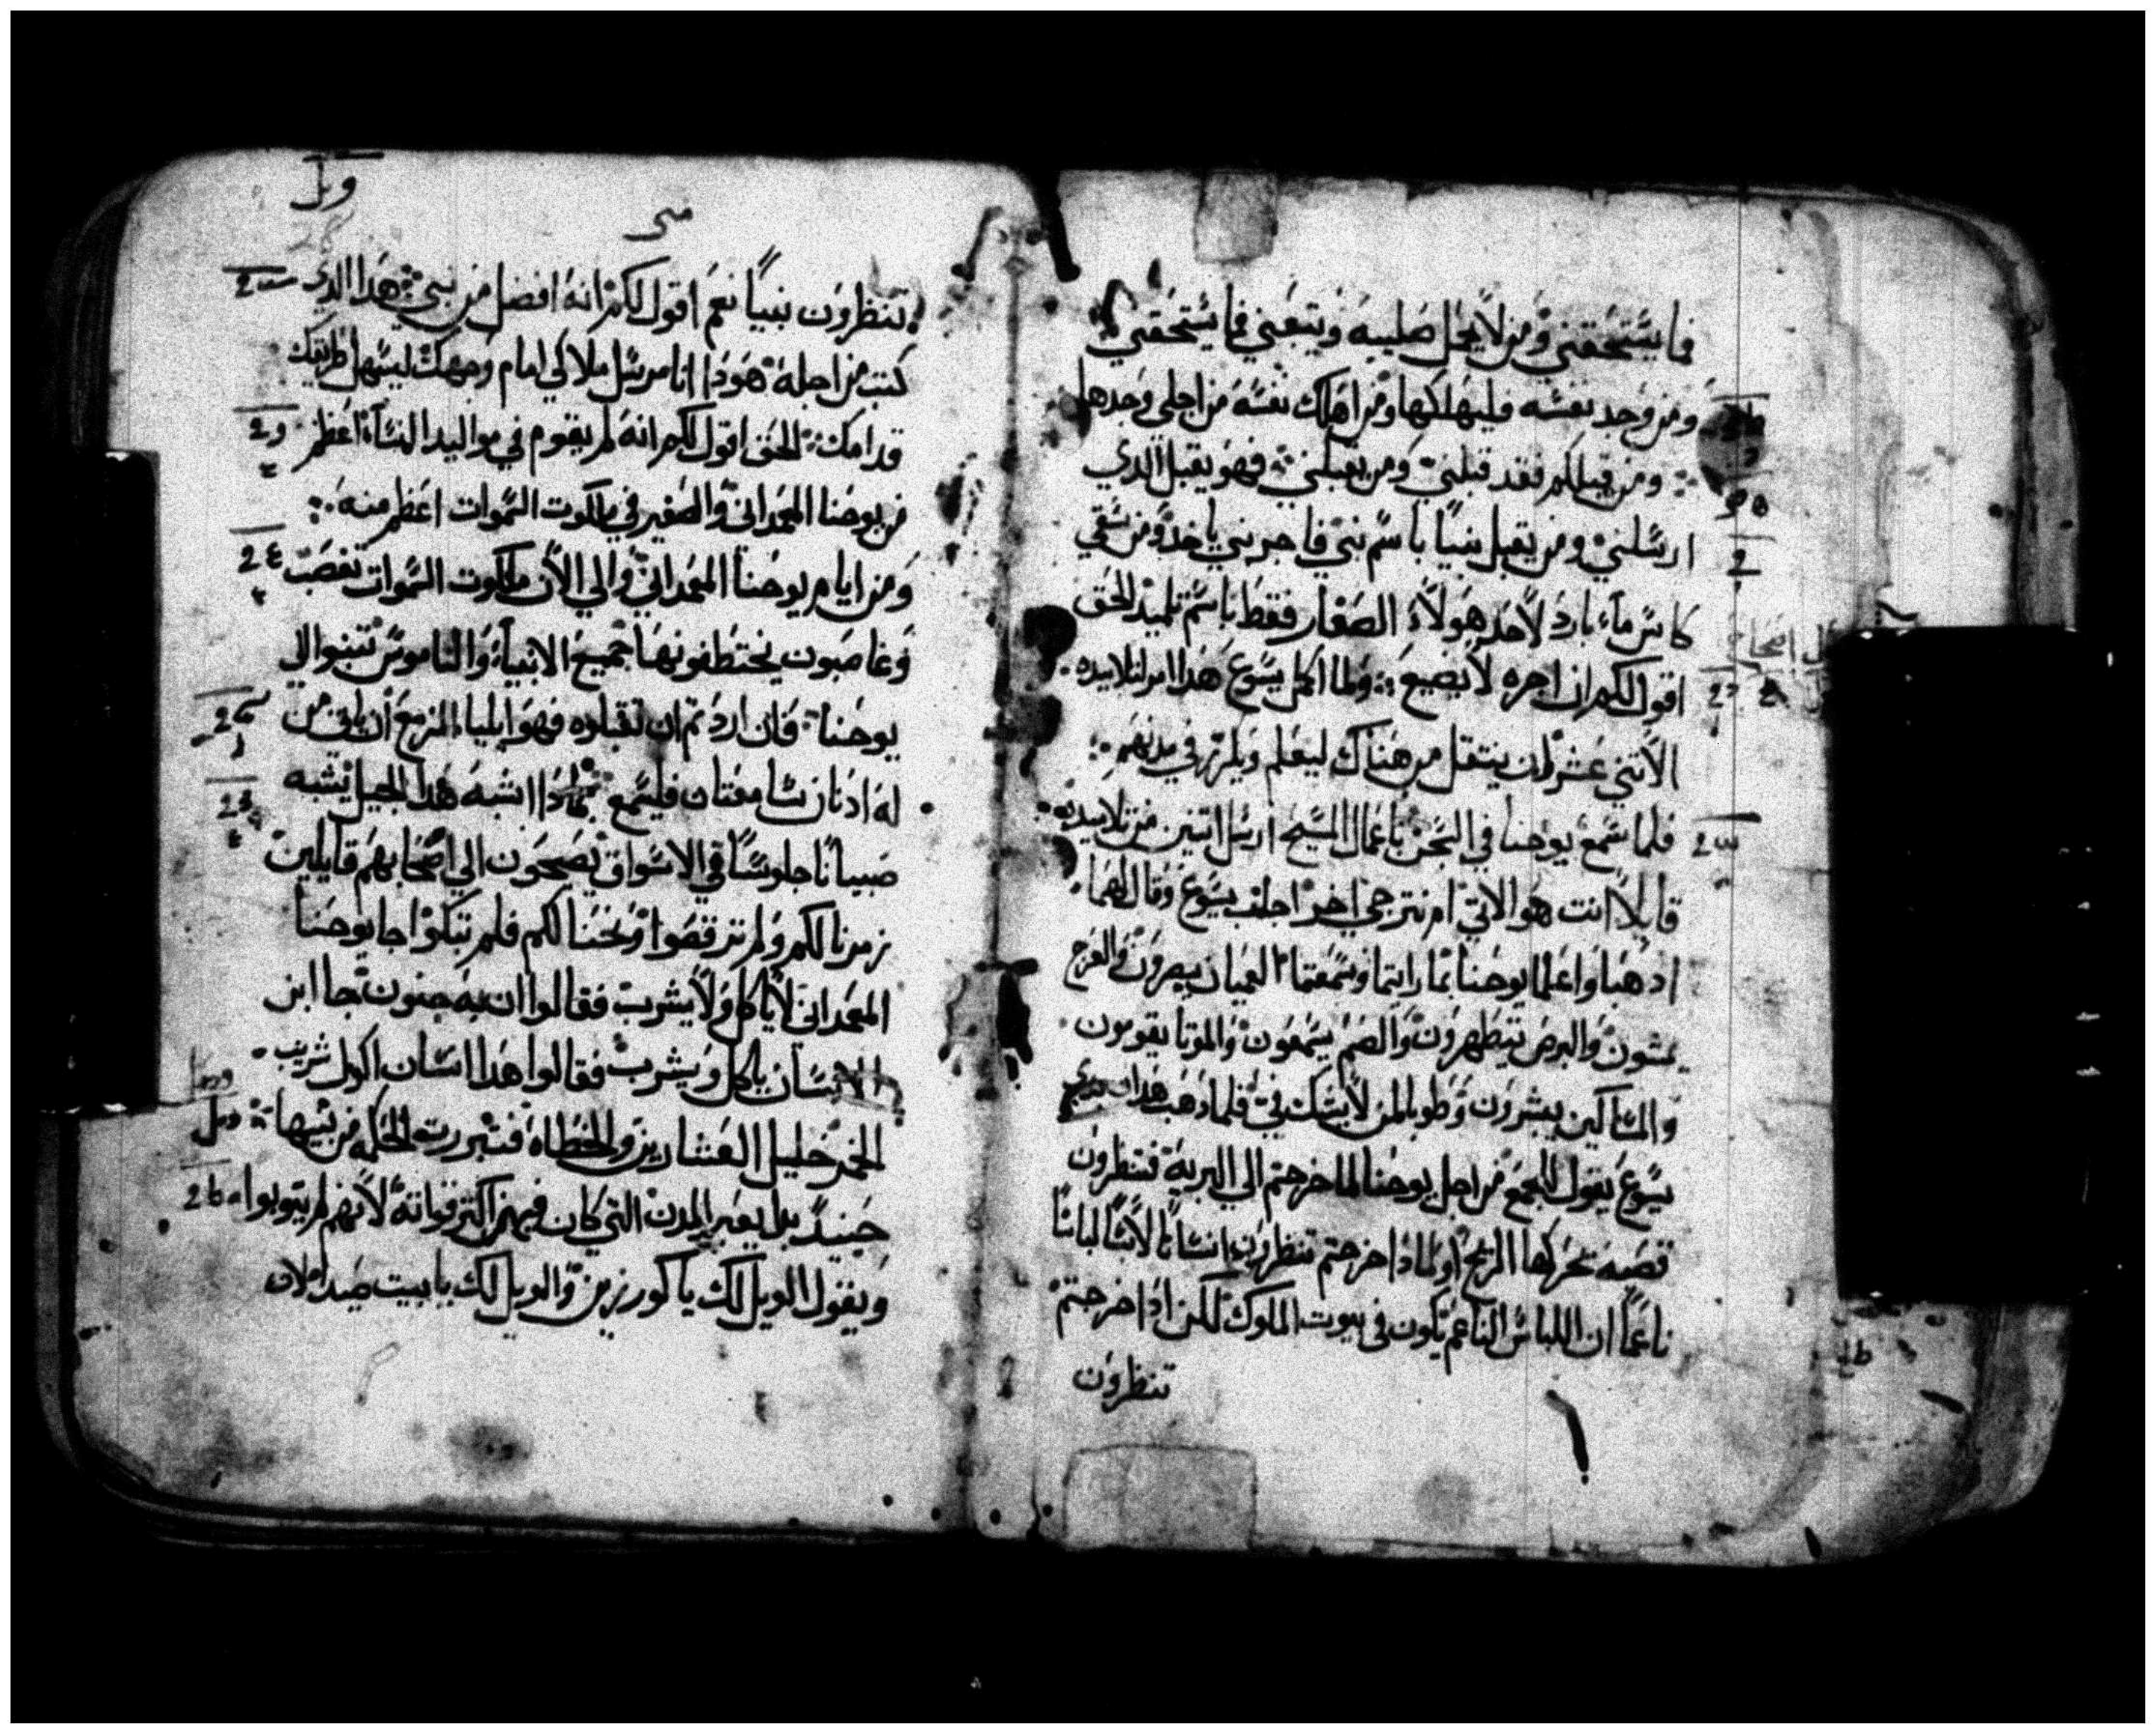 فما يستحقني ومن لا يحمل صليبه ويتبعني فما يستحقني
ومن وجد نفسه فليهلكها ومن اهلك نفسه من اجلي وجدها
ومن قبلكم فقد قبلني ومن يقبلني فهو يقبل الذي
ارسلني ومن يقبل نبيًا باسم نبي فاجر نبي ياخد ومن سقي
كاس ماء بارد لاحد هولاء الصغار فقط باسم تلميد الحق
اقول لكم ان اجره لا يضيع ولما اكمل يسوع هدا امر لتلاميده
الاتني عشر ان ينتقل من هناك ليعلم ويكرز في مدنهم
فلما سمع يوحنا في السجن باعمال المسيح ارسل اتنين من تلاميده
قايلًا انت هو الاتي ام نترجي اخر اجاب يسوع وقال لهما
ادهبا واعلما يوحنا بما رايتما وسمعتما العميان يبصرون والعرج
يمشون والبرص يتطهرون والصم يسمعون والموتا يقومون
والمساكين يبشرون وطوبا لمن لا يشك في فلما دهب هدان
يسوع يقول للجمع من اجل يوحنا لما خرجتم الي البرية تنظرون
قصبة تحركها الريح او لمادا خرجتم تنظرون انسانًا لابسًا لباسًا
ناعمًا ان اللباس الناعم يكون في بيوت الملوك لكن ادا خرجتم
تنظرون
متى
تنظرون نبيًا نعم اقول لكم انه افضل من نبي هدا الدي
كتب من اجله هودا انا مرسل ملاكي امام وجهك ليسهل طريقك
قدامك الحق اقول لكم انه لم يقوم في مواليد النساء اعظم
من يوحنا المعمداني والصغير في ملكوت السموات اعظم منه
ومن ايام يوحنا المعمداني والي الان ملكوت السموات تغصب
وغاصبون يختطفونها جميع الانبياء والناموس تنبوا الي
يوحنا فان اردتم ان تقبلوه فهو ايلياء المزمع ان ياتي من
له ادنان سامعتان فليسمع بمادا اشبه هدا الجيل يشبه
صبيانًا جلوسًا في الاسواق يصيحون الي اصحابهم قايلين
زمرنا لكم ولم ترقصوا ونحنا لكم فلم تبكوا جا يوحنا
المعمداني لا ياكل ولا يشرب فقالوا ان به جنون جا ابن
الانسان ياكل ويشرب فقالوا هدا انسان اكول شريب
الخمر خليل العشارين والخطاه فتبررت الحكمه من بنيها
حينيدً بدا يعير المدن التي كان فيهن اكثر قواته لانهم لم يتوبوا
ويقول الويل لك يا كورزين والويل لك يا بيت صيدا لان